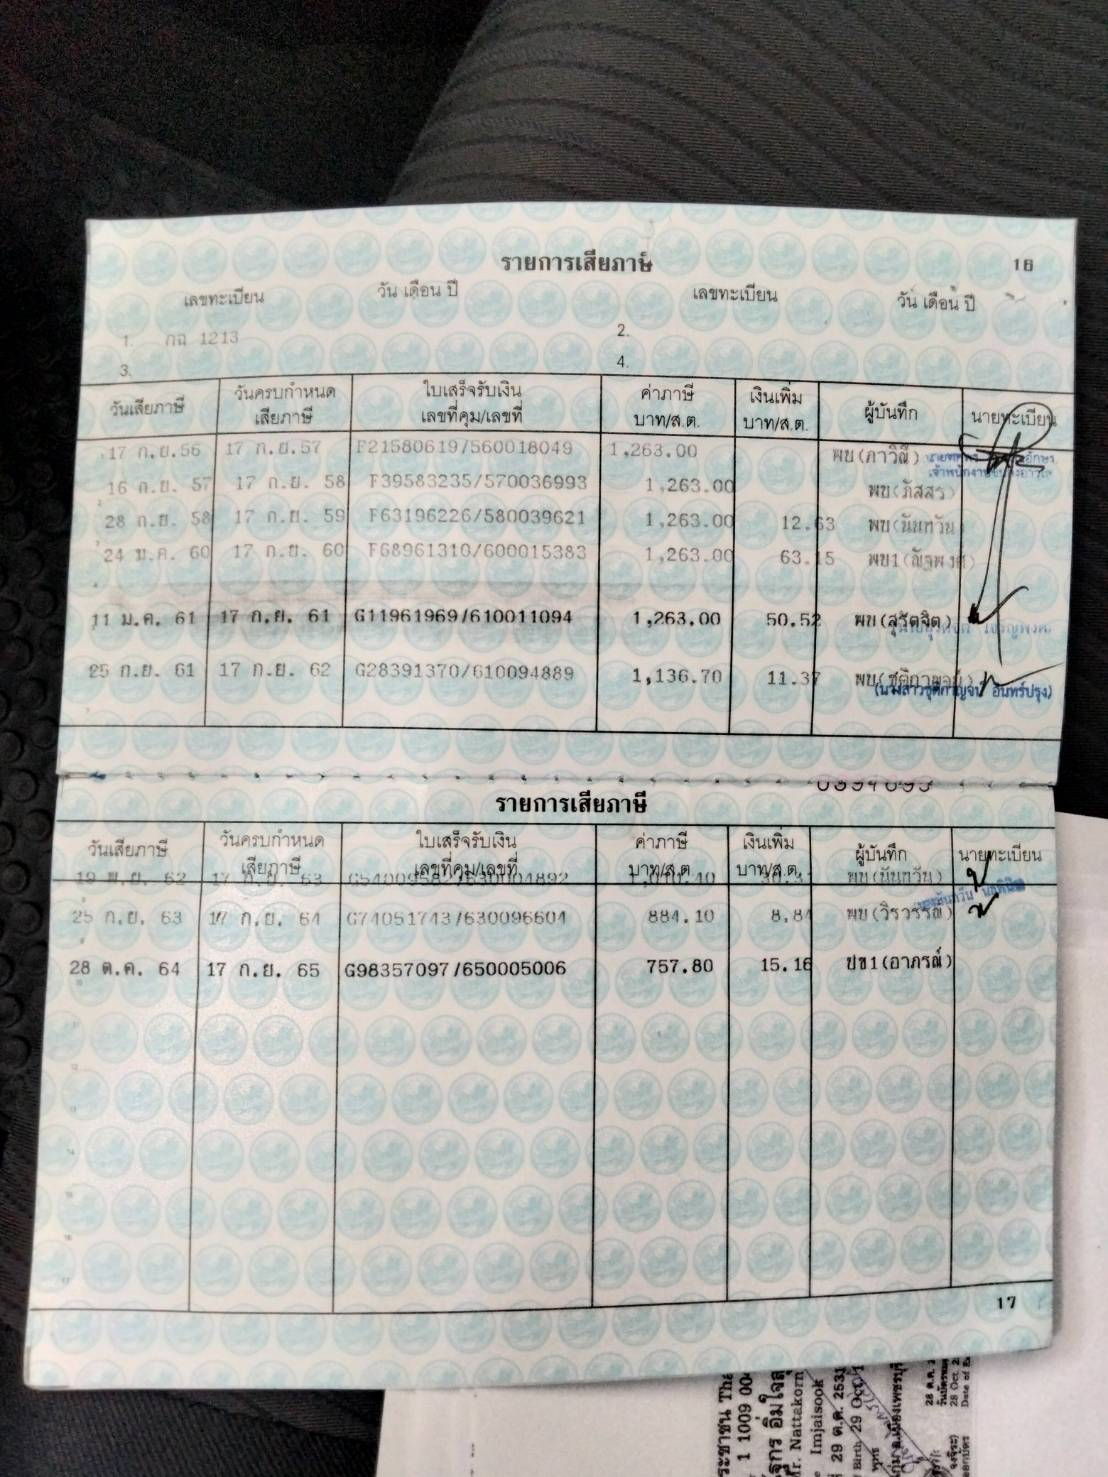 รายการเสียภาษี 16
เลขทะเบียน วัน เดือน ปี เลขทะเบียน วัน เดือน ปี
1. กฉ 1213 2.
3. 4.
วันเสียภาษี วันครบกำหนด เสียภาษี ใบเสร็จรับเงิน เลขที่คุม/เลขที่ ค่าภาษี บาท/ส.ต. เงินเพิ่ม บาท/ส.ต. ผู้บันทึก นายทะเบียน
17 ก.ย.56 17 ก.ย.57 F21580619/560018049 1,263.00 พบ(ภาวิณี)
16 ก.ย. 57 17 ก.ย. 58 F39583235/570036993 1,263.00 พบ(ภัสสร)
28 ก.ย. 58 17 ก.ย. 59 F63196226/580039621 1,263.00 12.63 พบ(นันทวัน)
24 ม.ค. 60 17 ก.ย. 60 F68961310/600015383 1,263.00 63.15 พบ1(ณัฐพงศ์)
11 ม.ค. 61 17 ก.ย. 61 G11961969/610011094 1,263.00 50.52 พบ(สุรัตจิต)
25 ก.ย. 61 17 ก.ย. 62 G28391370/610094889 1,136.70 11.37 พบ(ชุติกาญจน์)
(นางสาวชุติกาญจน์ อินทร์ปรุง)
รายการเสียภาษี
วันเสียภาษี วันครบกำหนด เสียภาษี ใบเสร็จรับเงิน เลขที่คุม/เลขที่ ค่าภาษี บาท/ส.ต. เงินเพิ่ม บาท/ส.ต. ผู้บันทึก นายทะเบียน
19 พ.ย. 62 17 ก.ย. 63 พบ(นันทวัน)
25 ก.ย. 63 17 ก.ย. 64 G74051743/630096604 884.10 8.84 พบ(วิรวรรณ)
28 ต.ค. 64 17 ก.ย. 65 G98357097/650005006 757.80 15.16 ปข1(อาภรณ์)
17
1 1009 00
Mr. Nattakorn
Imjaisook
29 ต.ค. 2531
Birth 29 Oct.